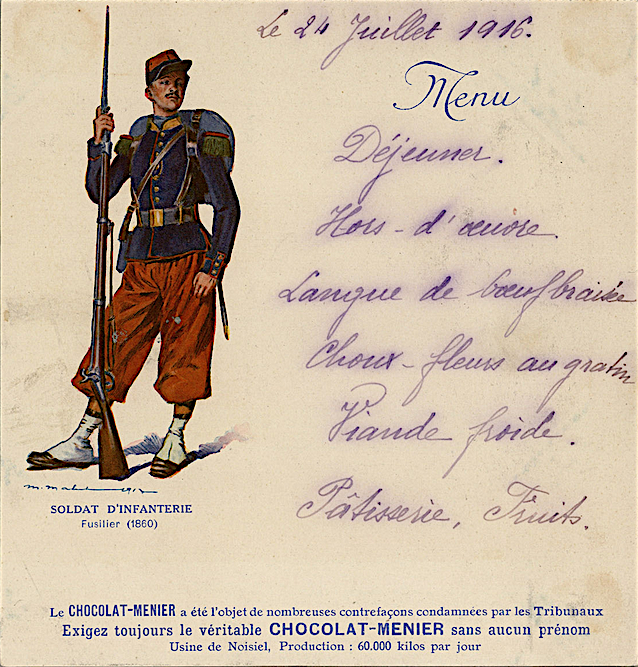 Le 24 Juillet 1916.
Menu
Déjeuner.
Hors-d'œuvre.
Langue de bœuf braisée
Choux-fleurs au gratin
Viande froide.
Pâtisserie, Fruits.
SOLDAT D'INFANTERIE
Fusilier (1860)
Le CHOCOLAT-MENIER a été l'objet de nombreuses contrefaçons condamnées par les Tribunaux
Exigez toujours le véritable CHOCOLAT-MENIER sans aucun prénom
Usine de Noisiel, Production : 60.000 kilos par jour